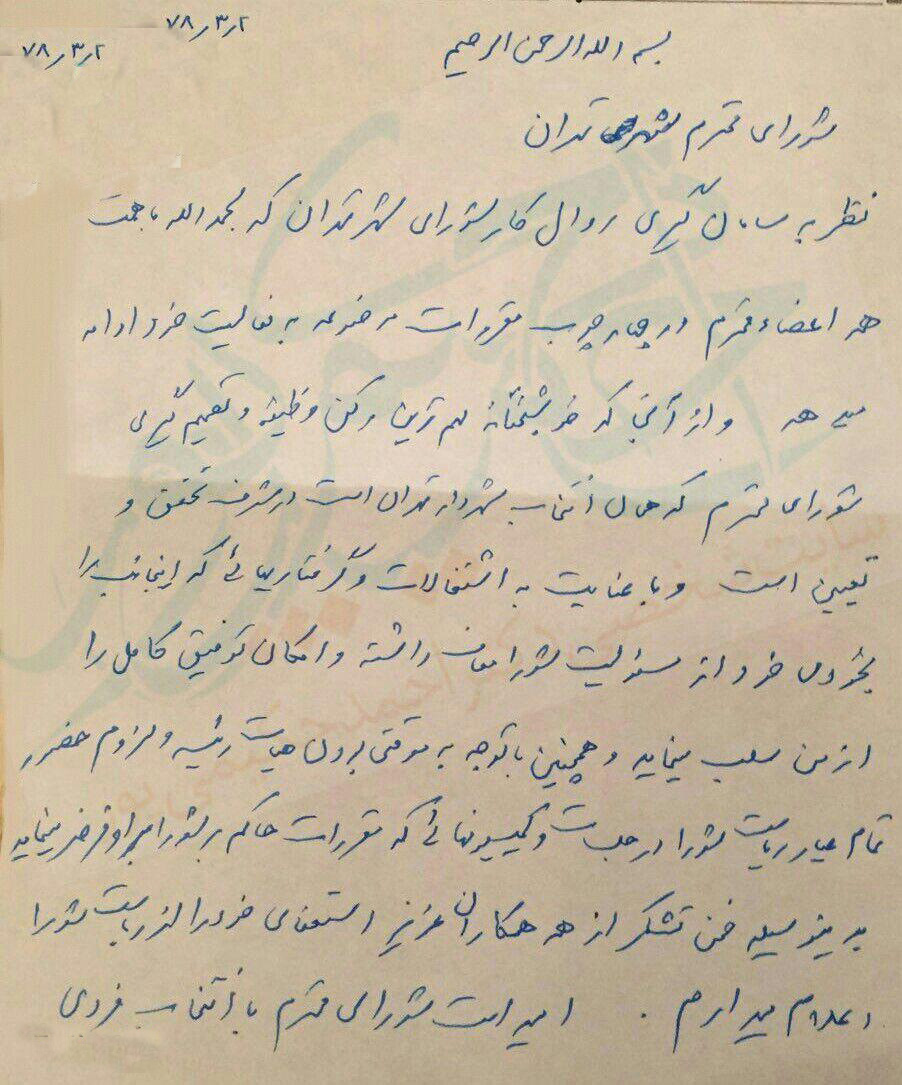 ۷۸٫۳٫۲
۷۸٫۳٫۲
بسم الله الرحمن الرحیم
شورای محترم شهر تهران
نظر به سامان گیری روال کار شورای شهر تهران که بحمدالله با همت
همه اعضاء محترم در چهارچوب مقررات موضوعه به فعالیت خود ادامه
می دهد و از آنجا که خوشبختانه مهم ترین رکن وظیفه و تصمیم گیری
شورای محترم که همان انتخاب شهردار تهران است در شرف تحقق و
تعیین است و با عنایت به اشتغالات و گرفتاریهائی که اینجانب را
بخودی خود از مسئولیت شورا معاف داشته و امکان توفیق کامل را
از من سلب مینماید و همچنین با توجه به موقتی بودن هیات رئیسه و لزوم حضور
تمام عیار ریاست شورا در جلسات و کمیسیونهائی که مقررات حاکم بر شورا بر او فرض مینماید
بدینوسیله ضمن تشکر از همه همکاران عزیز استعفای خود را از ریاست شورا
اعلام میدارم . امید است شورای محترم با انتخاب فردی